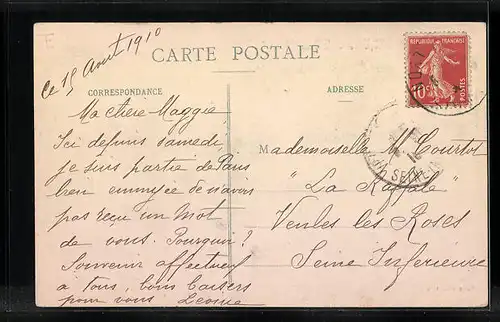 Ce 15 Aout 1910
CARTE POSTALE
REPUBLIQUE FRANÇAISE
10c
POSTES
CORRESPONDANCE
ADRESSE
Ma chere Maggie
Ici depuis samedi
je suis partie de Paris
bien ennuyée de n'avoir
pas reçu un mot
de vous. Pourquoi?
Souvenir affectueux
à tous, bons baisers
pour vous Leonie
Mademoiselle M. Courtot
"La Raffale"
Veules les Roses
Seine Inferieure